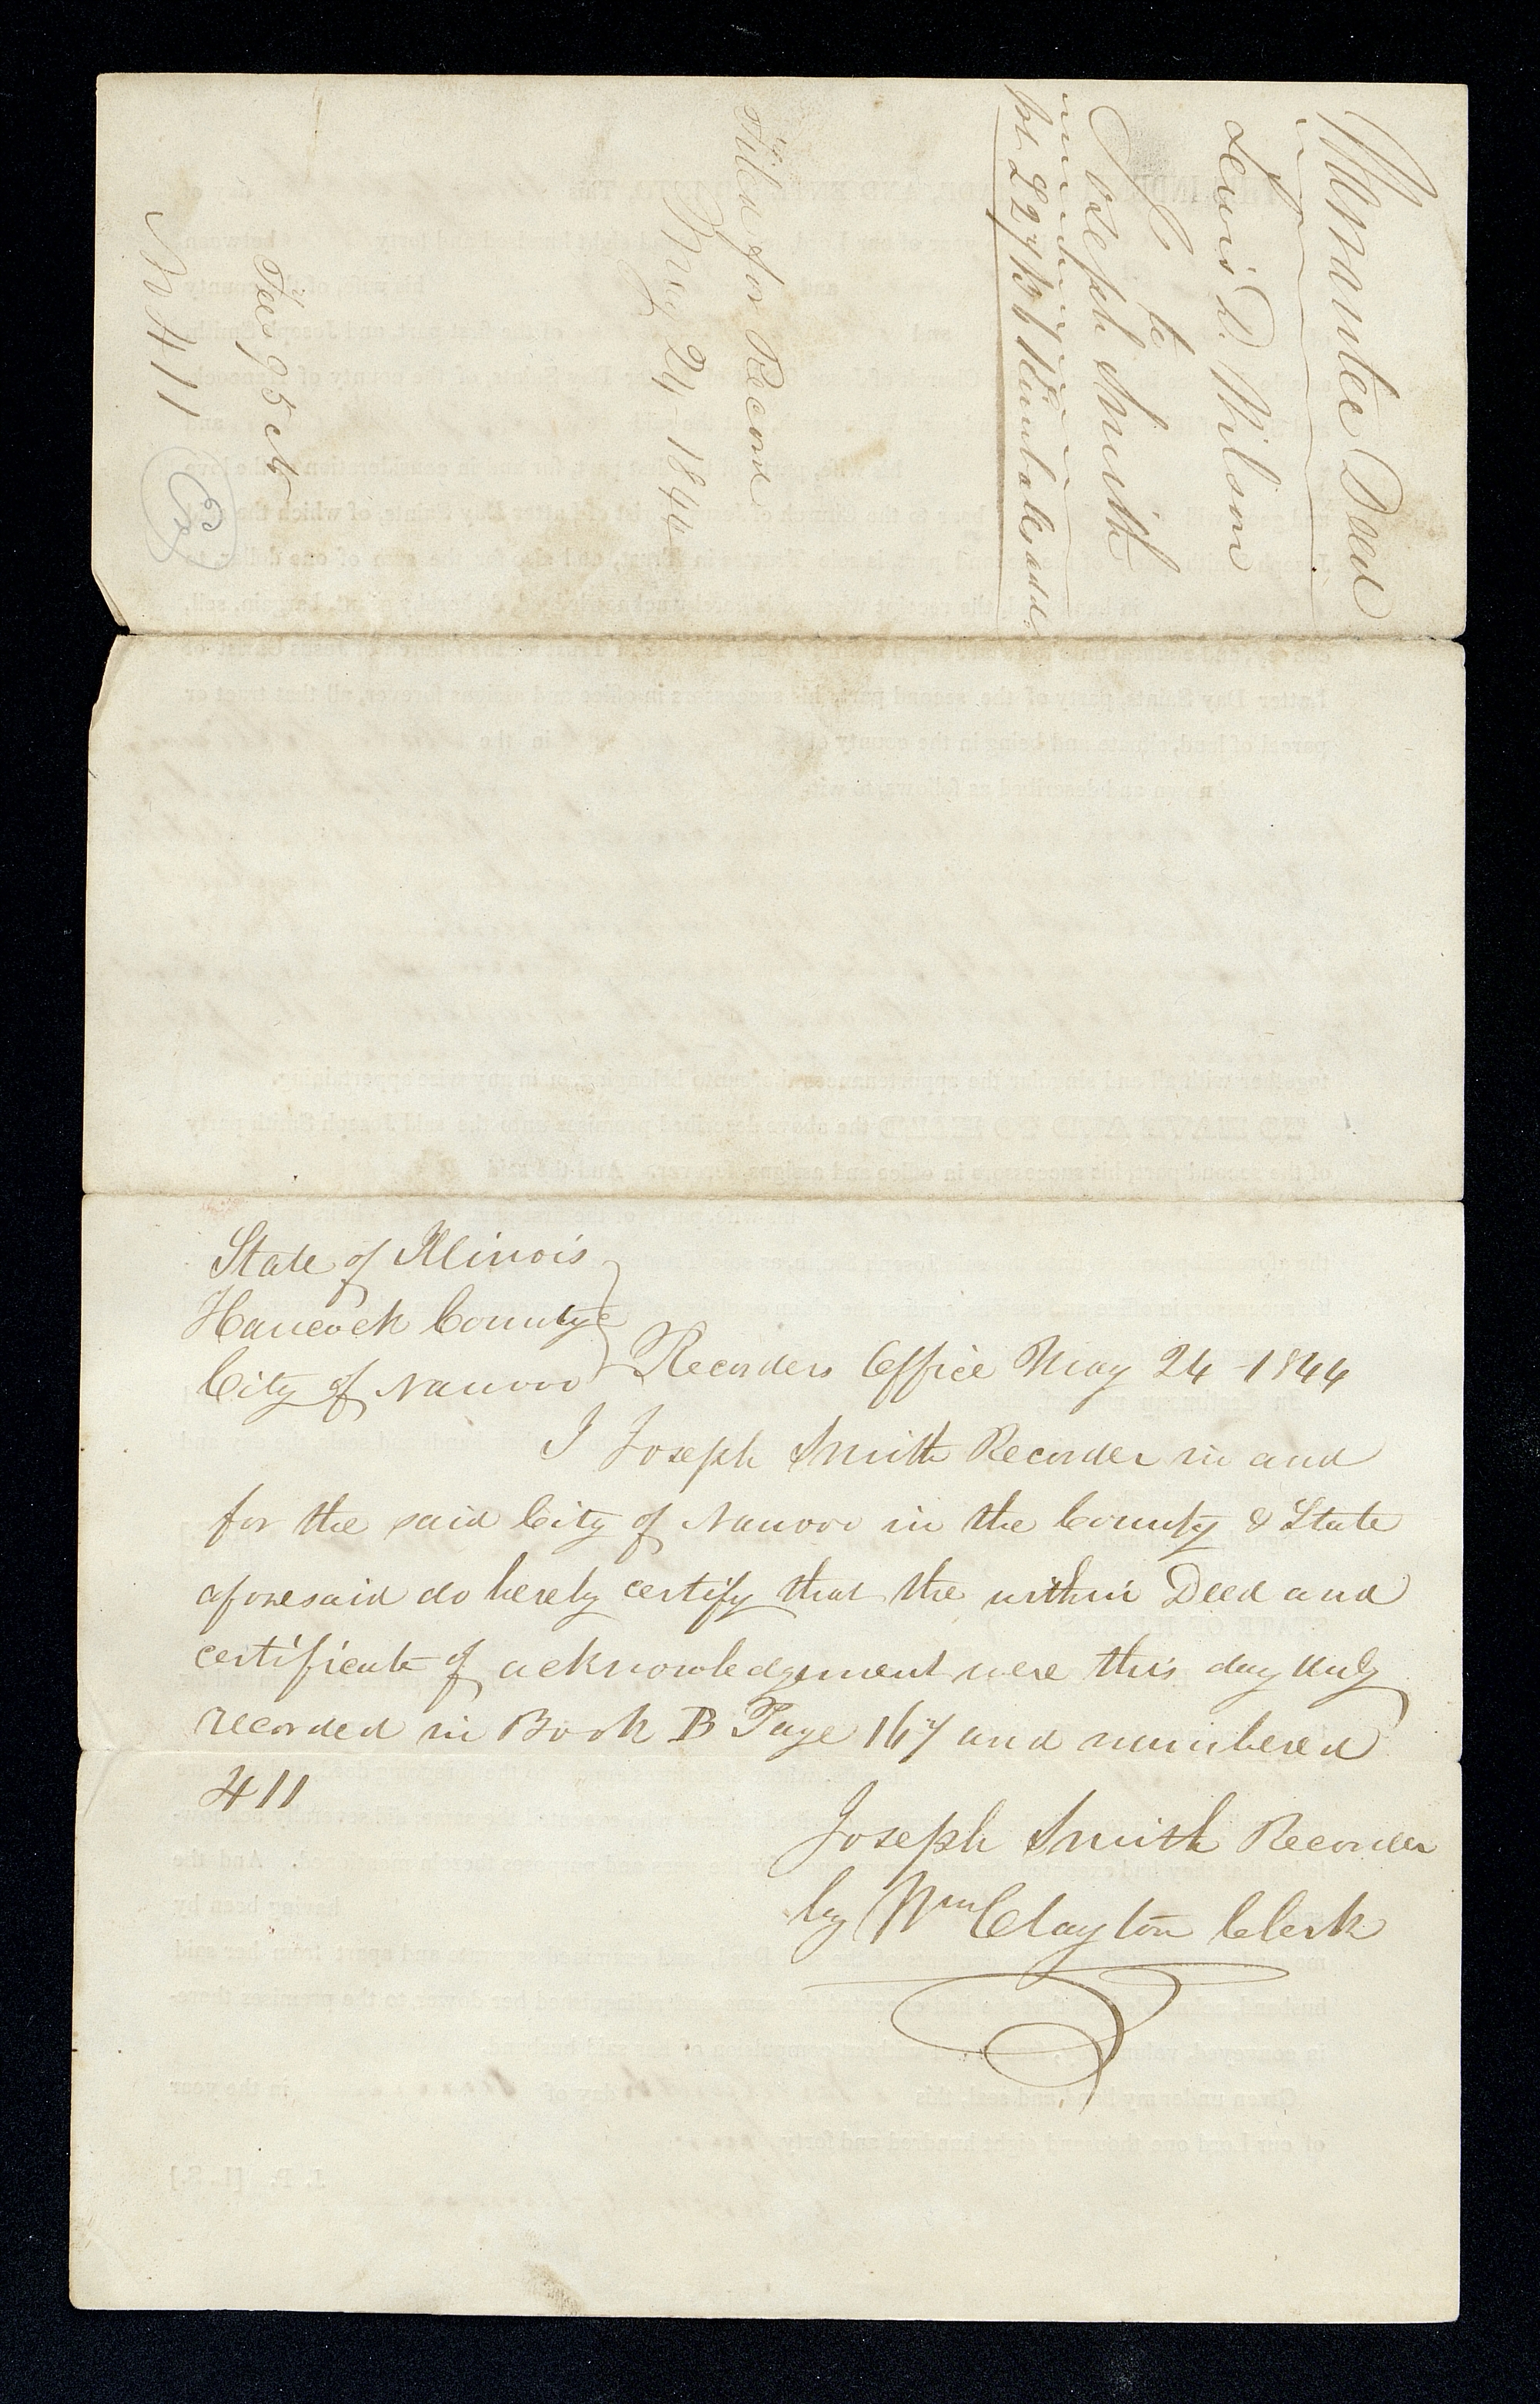 Warrantee Deed
Lewis D. Wilson
to
Joseph Smith
Lot 2 Kimballs add.
Filed for Record
May 24 - 1844
Fees 95 cts
N 411
State of Illinois
Hancock County
City of Nauvoo
Recorders Office May 24 - 1844
I Joseph Smith Recorder in and
for the said City of Nauvoo in the County & State
aforesaid do hereby certify that the within Deed and
certificate of acknowledgement were this day duly
recorded in Book B Page 167 and numbered
411
Joseph Smith Recorder
by Wm Clayton Clerk